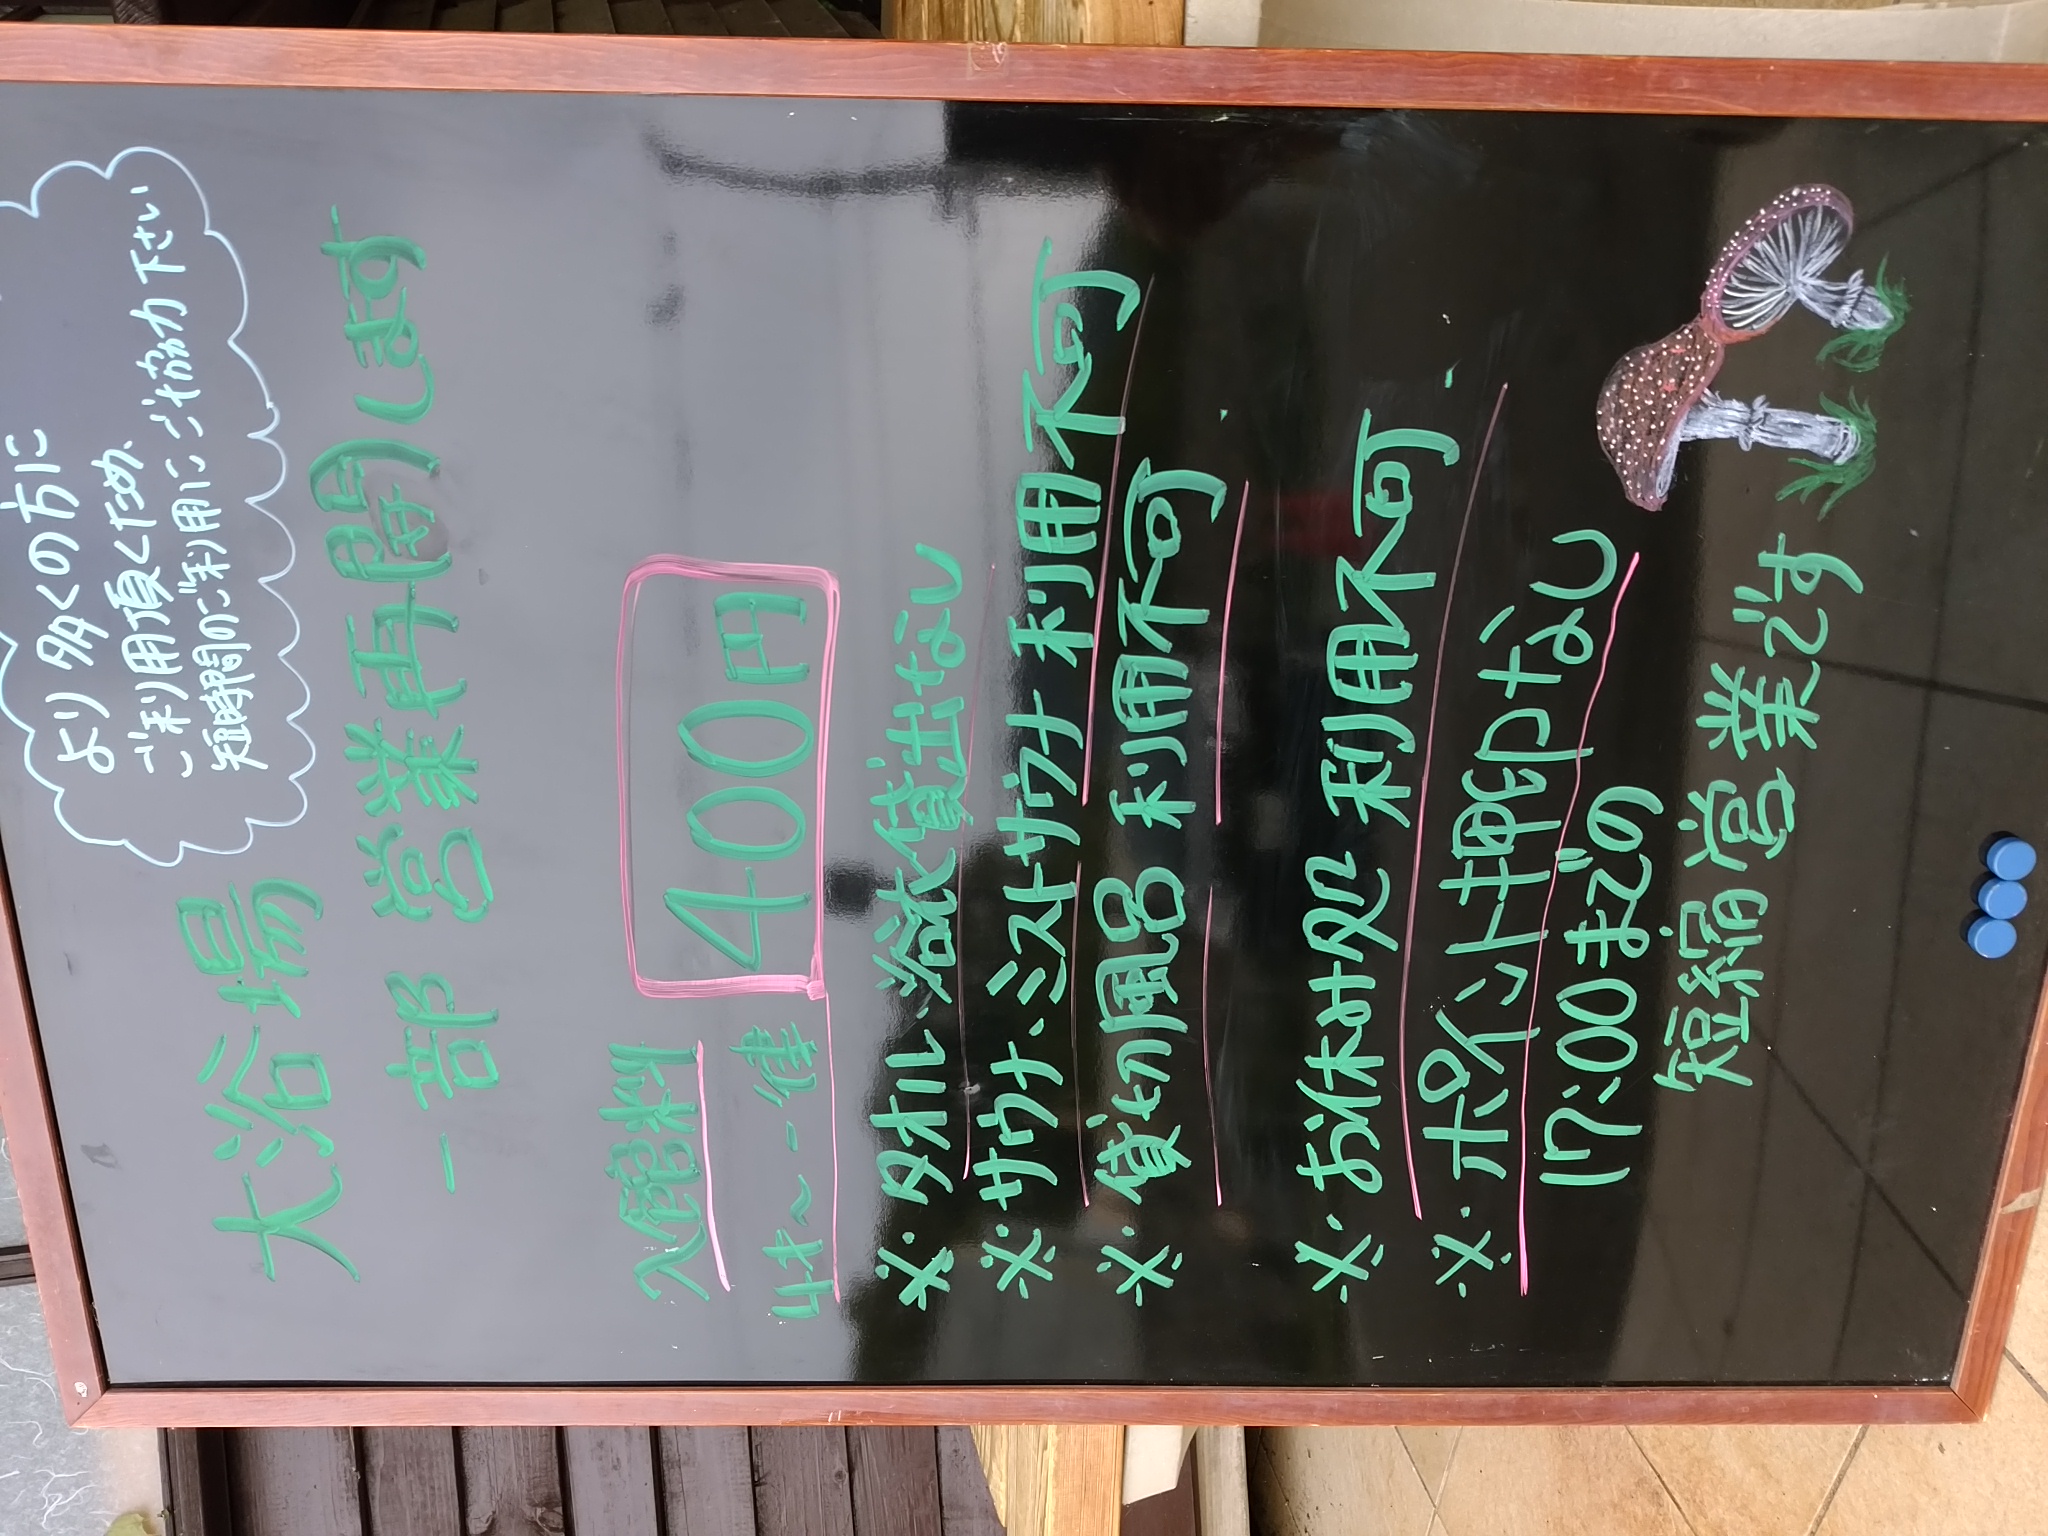 より多くの方に
ご利用頂くため、
短時間のご利用にご协力下さい
大浴場
一部営業再開します
入館料
4才~一律
400円
※・タオル、浴衣貸出なし
※・サウナ・ミストサウナ 利用不可
※・貸切風呂 利用不可
※・お休み処 利用不可
※・ポイント押印なし
17:00までの
短縮営業です